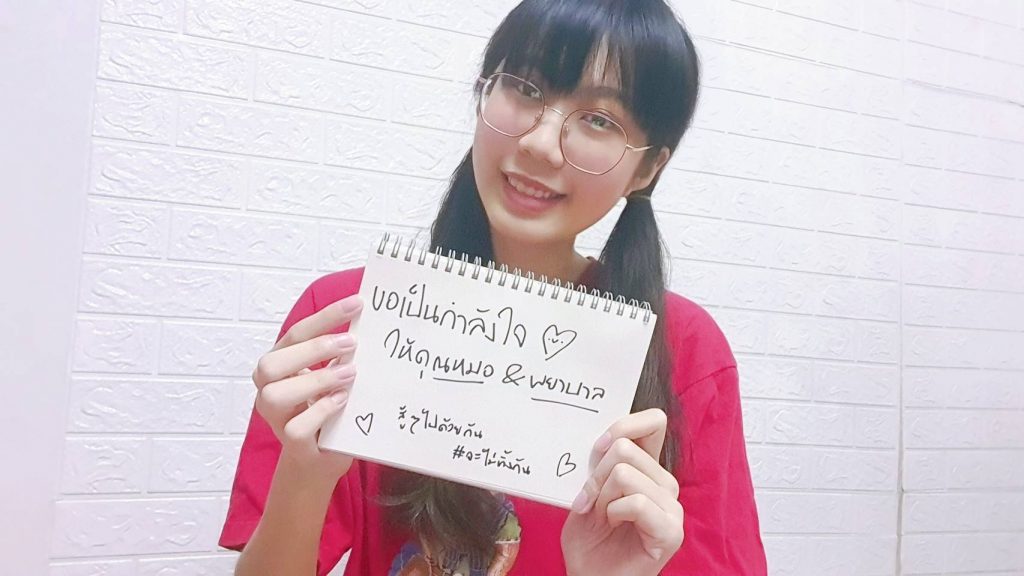 ขอเป็นกำลังใจ
ให้คุณหมอ & พยาบาล
สู้ๆไปด้วยกัน
#จะไม่ทิ้งกัน